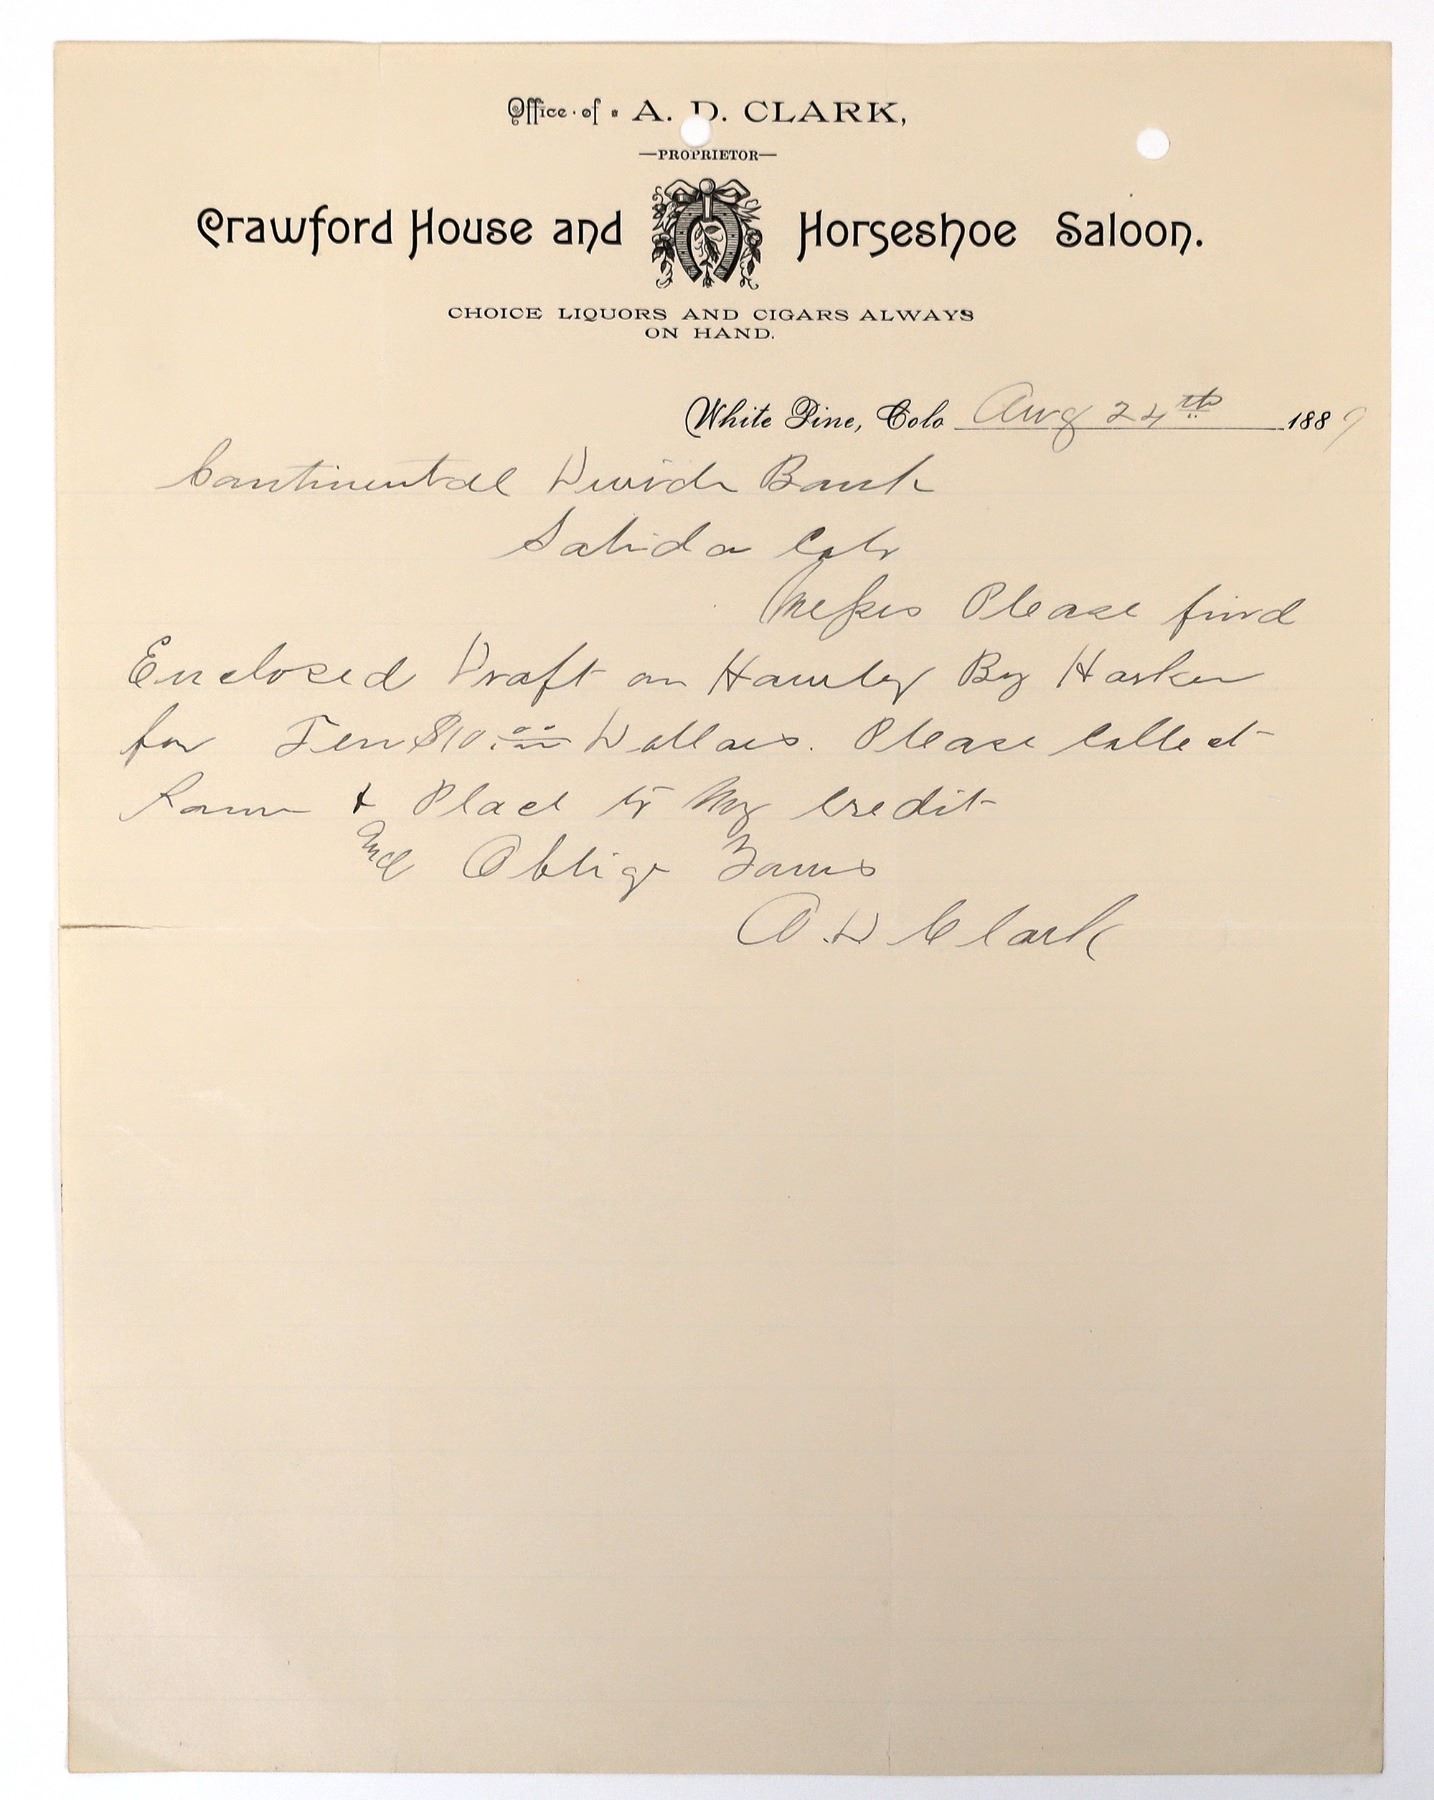 Office of A. D. CLARK,
—PROPRIETOR—
Crawford House and Horseshoe Saloon.
CHOICE LIQUORS AND CIGARS ALWAYS
ON HAND.
White Pine, Colo Aug 24th 1889
Continental Divide Bank
Salida Colo
Messrs Please find
Enclosed Draft on Hawley By Harker
for Ten $10.00 Dollars. Please Collect
Same & Place to My Credit
And Oblige Yours
A. D Clark